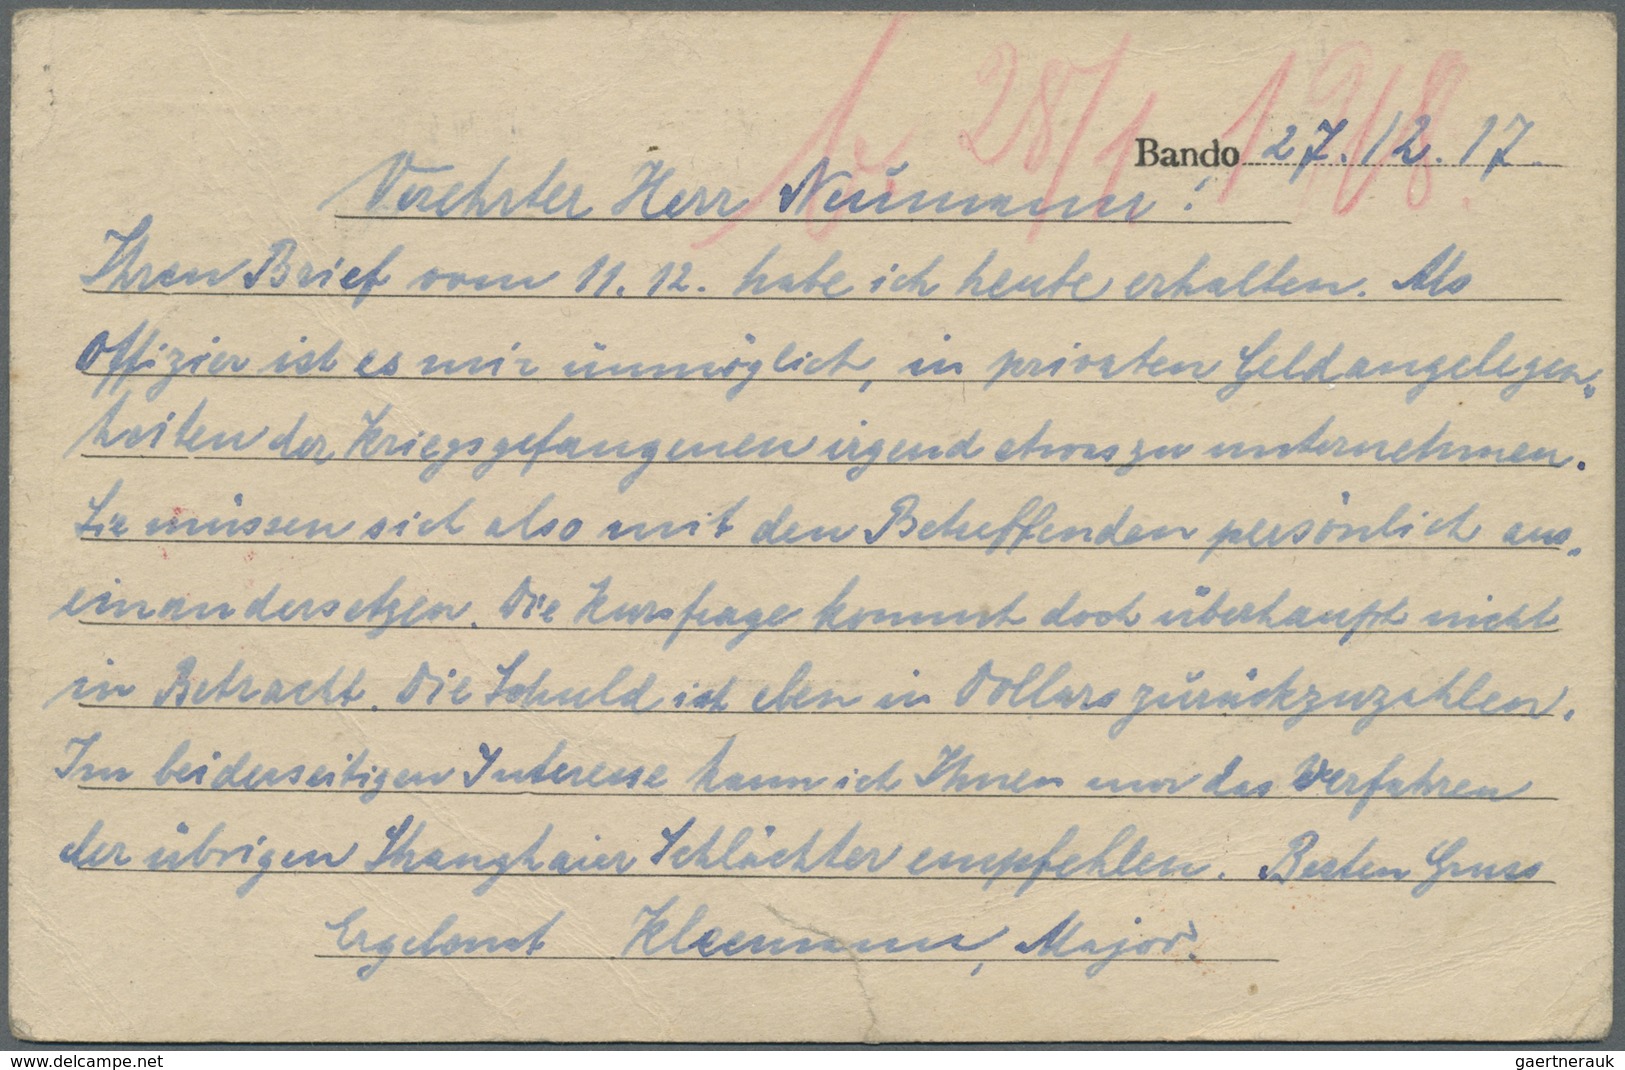 28/1 1918.
Bando 27.12.17.
Verehrter Herr Neumann!
Ihren Brief vom 11.12. habe ich heute erhalten. Als
Offizier ist es mir unmöglich, in privaten Geldangelegen-
heiten der Kriegsgefangenen irgend etwas zu unternehmen.
Sie müssen sich also mit den Betreffenden persönlich aus-
einandersetzen. Die Kursfrage kommt doch überhaupt nicht
in Betracht. Die Schuld ist eben in Dollars zurückzuzahlen.
Im beiderseitigen Interesse kann ich Ihnen nur das Verfahren
der übrigen Shanghaier Schlächter empfehlen. Besten Gruss
Ergebenst Kleemann, Major.
delcampe.net
gaertnerauk